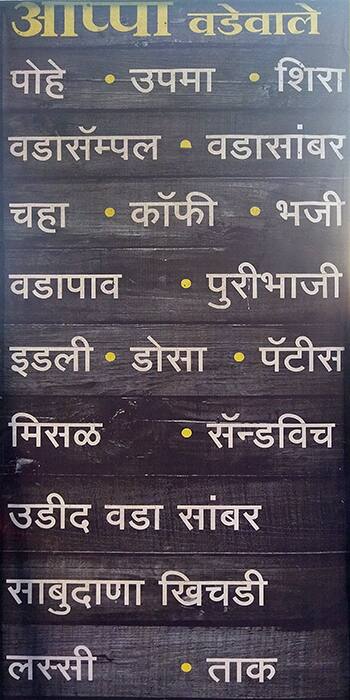 आप्पा वडेवाले
पोहे • उपमा • शिरा
वडासॅम्पल • वडासांबर
चहा • कॉफी • भजी
वडापाव • पुरीभाजी
इडली • डोसा • पॅटीस
मिसळ • सॅन्डविच
उडीद वडा सांबर
साबुदाणा खिचडी
लस्सी • ताक